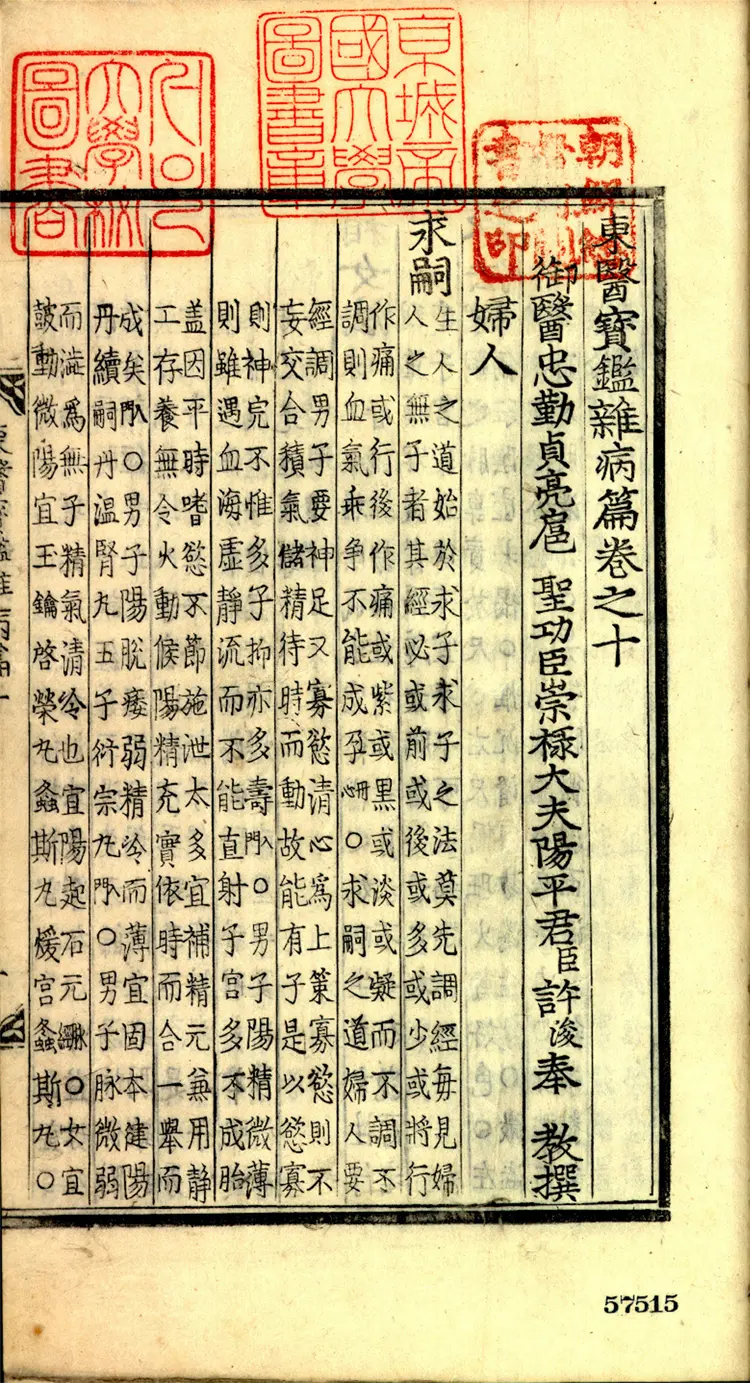 京城帝
國大學
圖書章
大學校
圖書
東醫寶鑑雜病篇卷之十
御醫忠勤貞亮扈 聖功臣崇祿大夫陽平君臣許浚奉 敎撰
婦人
求嗣
生人之道始於求子求子之法莫先調經每見婦
人之無子者其經必或前或後或多或少或將行
作痛或行後作痛或紫或黑或淡或凝而不調不
調則血氣乖争不能成孕○求嗣之道婦人要
經調男子要神足又寡慾清心爲上策寡慾則不
妄交合積氣儲精待時而動故能有子是以慾寡
則神完不惟多子抑亦多壽入門○男子陽精微薄
則雖遇血海虛靜流而不能直射子宮多不成胎
盖因平時嗜慾不節施泄太多宜補精元兼用静
工存養無令火動候陽精充實依時而合一舉而
成矣入門○男子陽脫痿弱精冷而薄宜固本健陽
丹續嗣丹溫腎丸五子衍宗丸入門○男子脉微弱
而澁爲無子精氣清冷也宜陽起石元○女宜
皷動微陽宜玉鑰啓榮丸螽斯丸煖宮螽斯丸○
東醫寶鑑雜病篇
57515